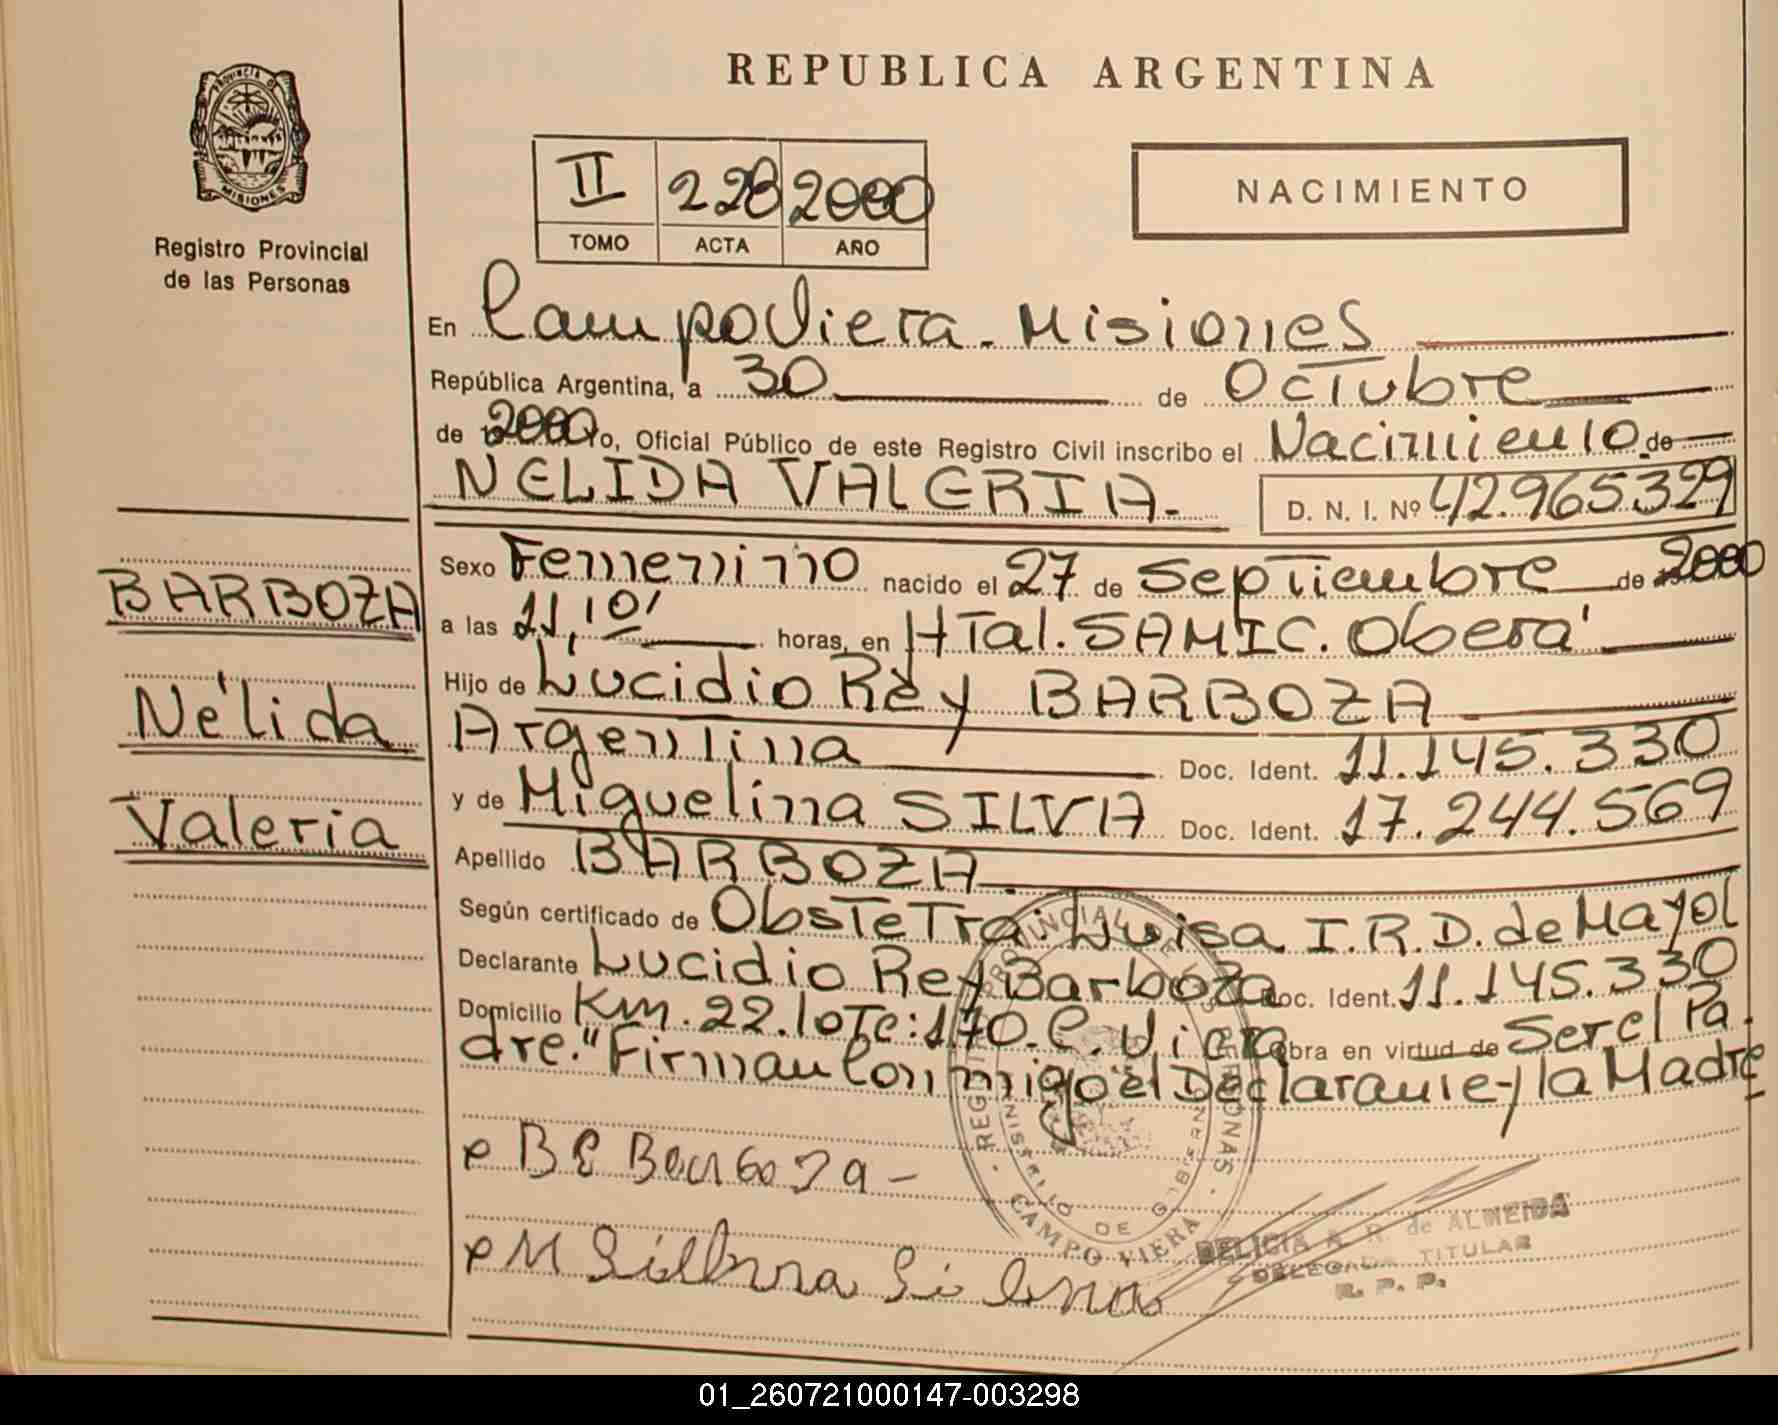 REPUBLICA ARGENTINA
PROVINCIA DE
MISIONES
Registro Provincial
de las Personas
II 228 2000
TOMO ACTA AÑO
NACIMIENTO
En Campo Viera - Misiones
República Argentina, a 30 de Octubre
de 2000 Yo, Oficial Público de este Registro Civil inscribo el Nacimiento de
NELIDA VALERIA.- D. N. I. Nº 42.965329
BARBOZA
Nélida
Valeria
Sexo Femenino nacido el 27 de Septiembre de 2000
a las 11,10' horas, en HTal. SAMIC. Oberá
Hijo de Lucidio Rey BARBOZA
Argentina Doc. Ident. 11.145.330
y de Miguelina SILVA Doc. Ident. 17.244.569
Apellido BARBOZA.
Según certificado de Obstetra: Luisa I.R.D. de Mayol
Declarante Lucidio Rey Barboza Doc. Ident. 11.145.330
Domicilio Km. 22. loTe: 170. C. Viera Obra en virtud de Ser el Pa-
dre." Firman Conmigo el Declarante y la Madre
Barboza -
REGISTRO PROVINCIAL DE LAS PERSONAS
MINISTERIO DE GOBIERNO
CAMPO VIERA
DELICIA A. R. de ALMEIDA
DELEGADA TITULAR
R. P. P.
01_260721000147-003298